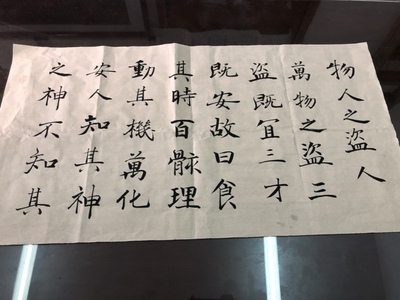 物人之盜人
萬物之盜三
盜既冝三才
既安故曰食
其時百骸理
動其機萬化
安人知其神
之神不知其